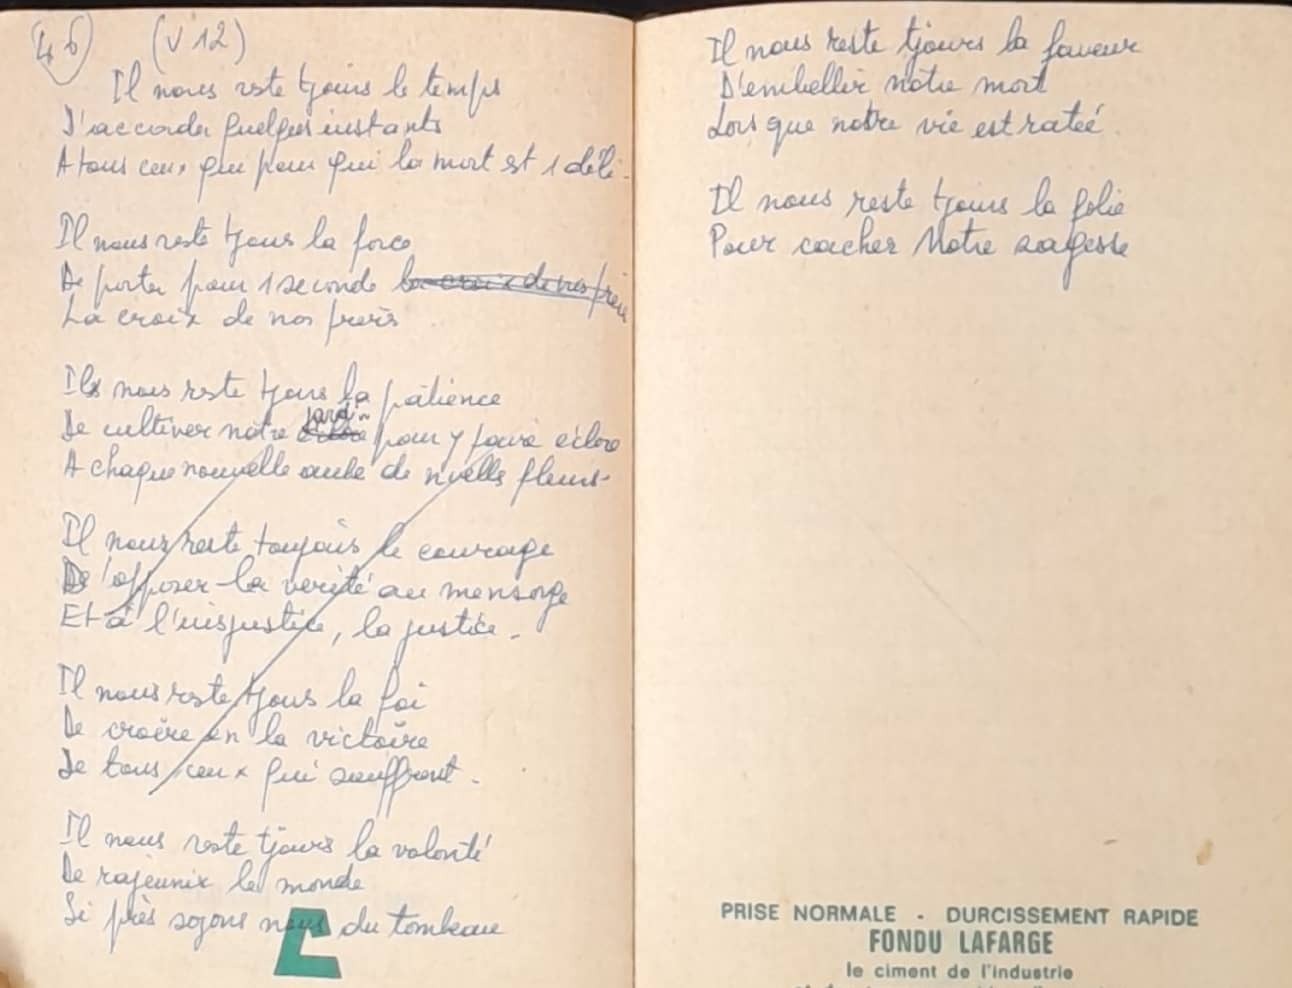 46 (V 12)
Il nous reste tjours le temps
D'accorder quelques instants
A tous ceux qui pour qui la mort est 1 déli.
Il nous reste tjours la force
De porter pour 1 seconde la croix de nos frères
La croix de nos frères
Il nous reste tjours la patience
jardin
De cultiver notre pour y faire éclore
A chaque nouvelle aube de nvelles fleurs.
Il nous reste toujours le courage
D'opposer la verité au mensonge
Et à l'injustice, la justice.
Il nous reste tjours la foi
De croire en la victoire
De tous ceux qui souffrent.
Il nous reste tjours la volonté
De rajeunir le monde
Si près soyons nous du tombeau
Il nous reste tjours la faveur
D'embellir notre mort
Lorsque notre vie est ratée.
Il nous reste tjours la folie
Pour cacher Notre sagesse
PRISE NORMALE - DURCISSEMENT RAPIDE
FONDU LAFARGE
le ciment de l'industrie